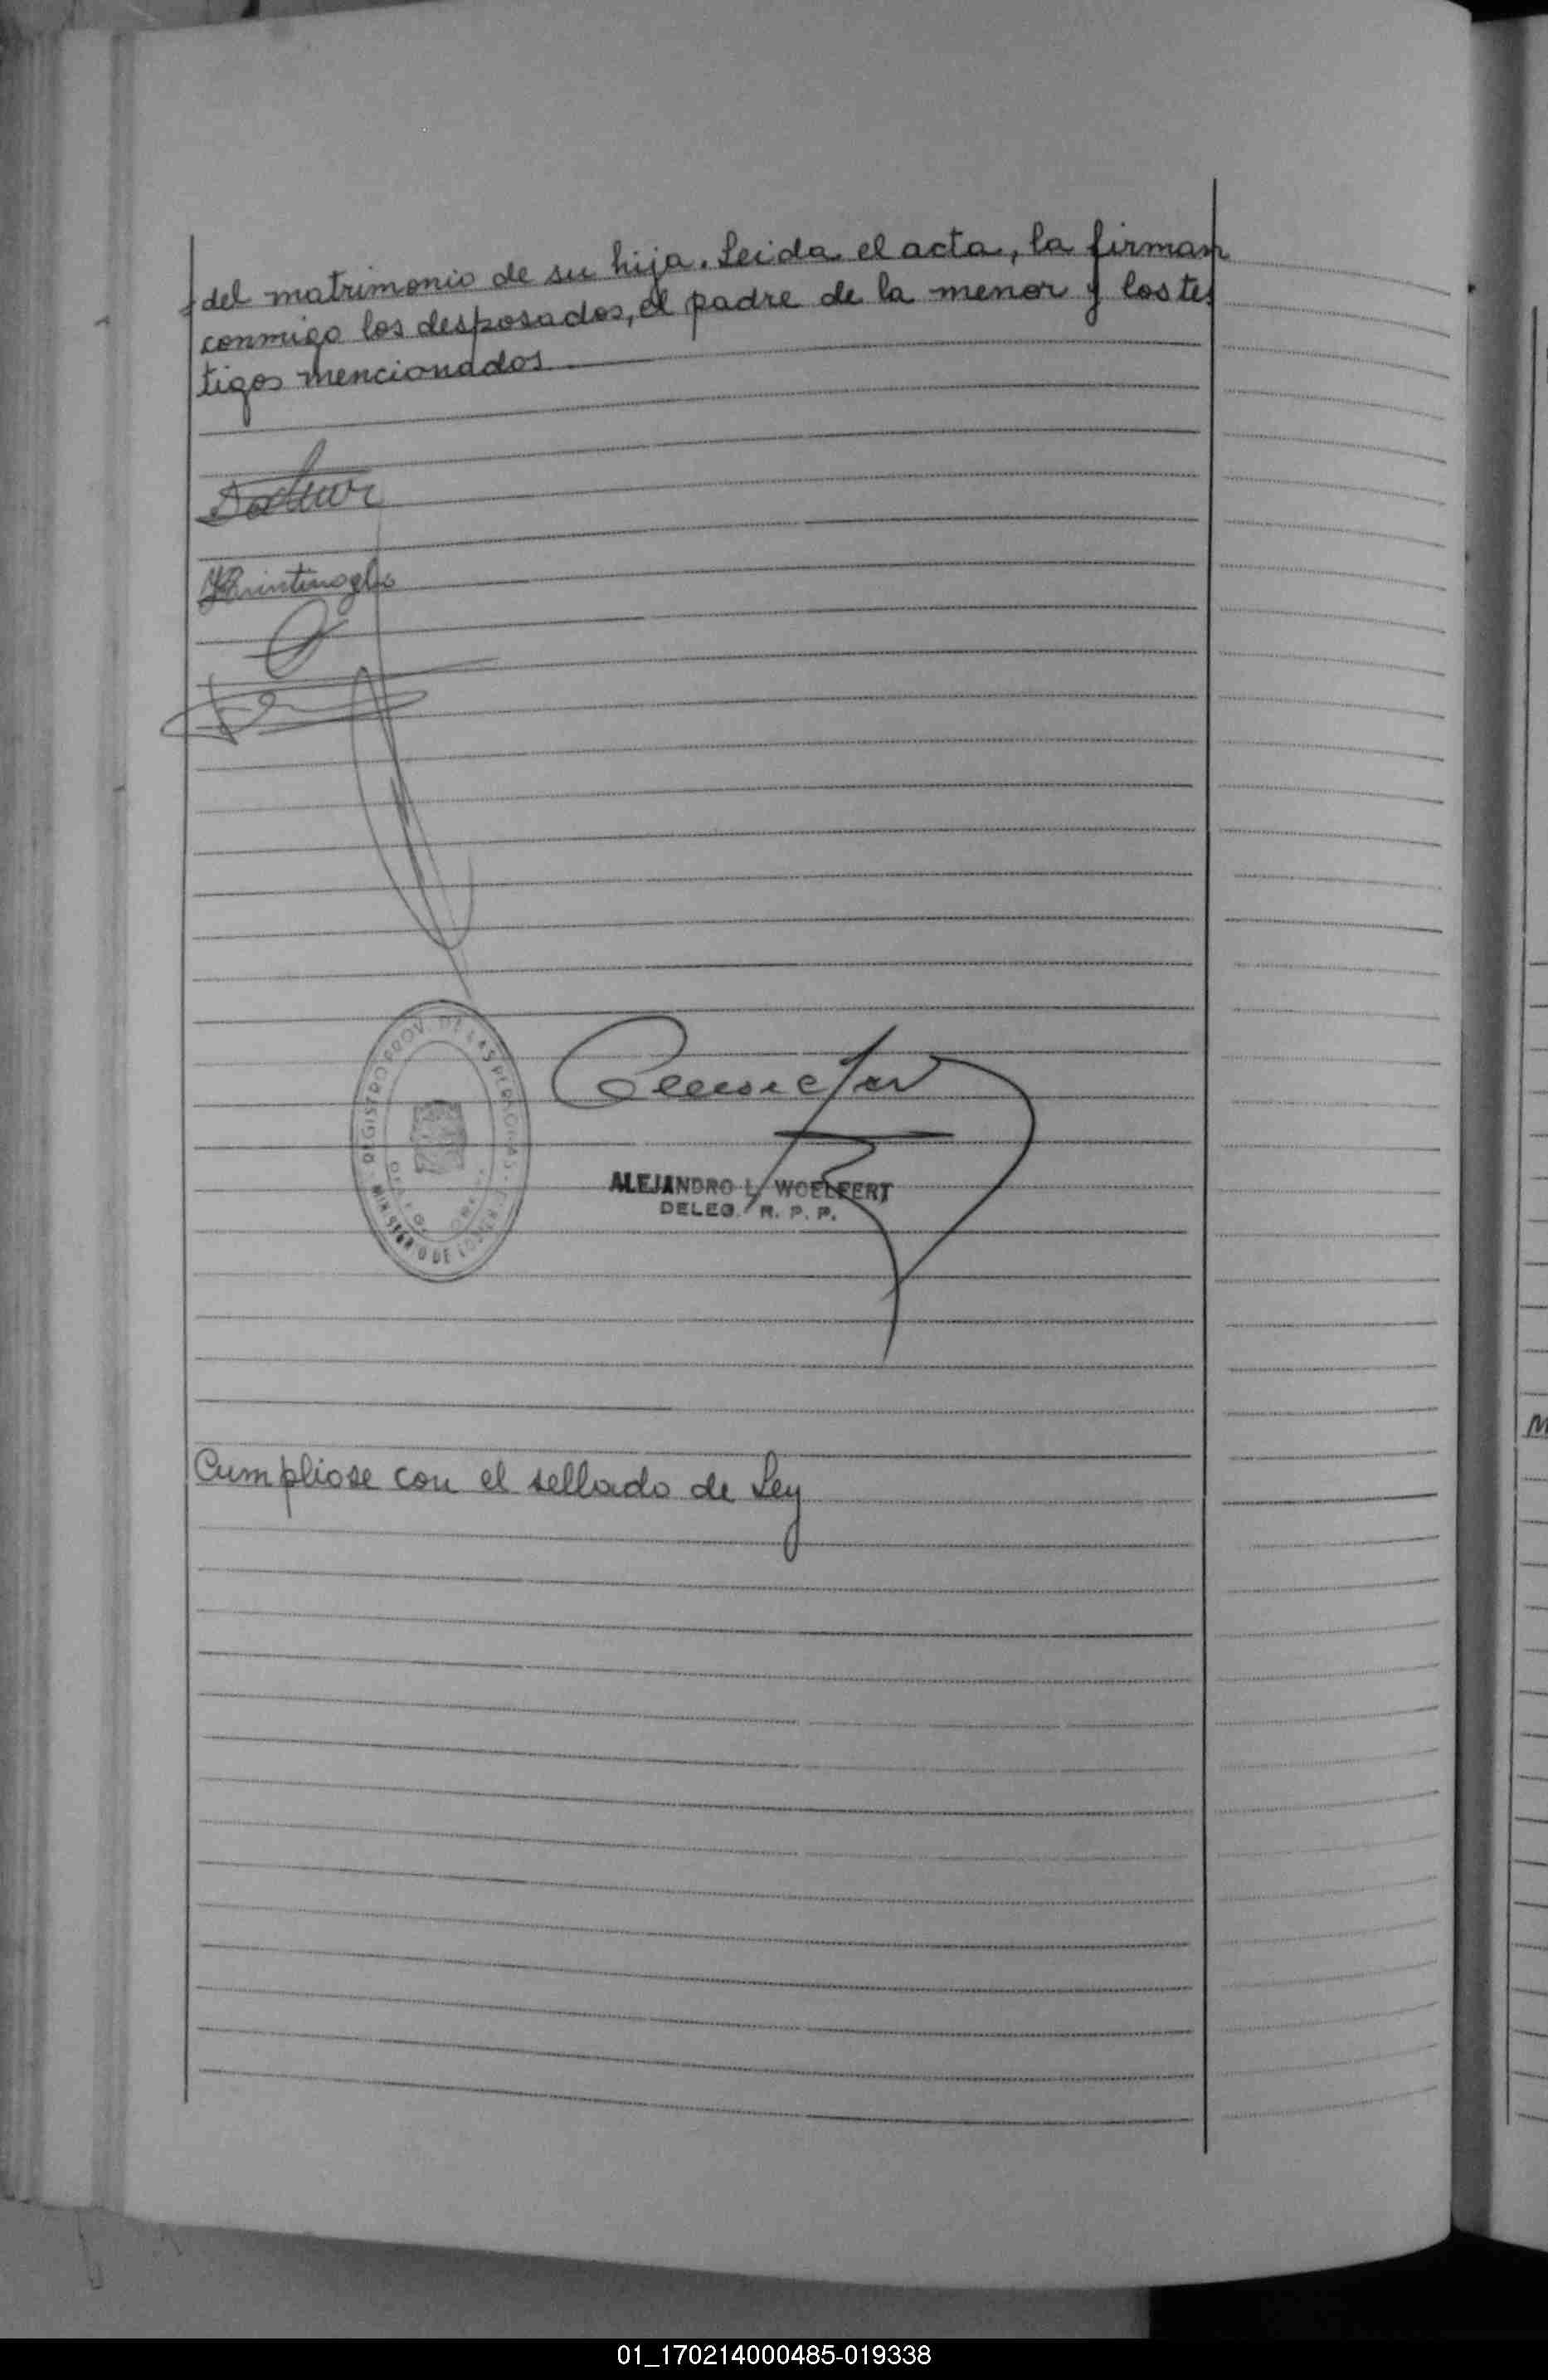 del matrimonio de su hija. Leida el acta, la firman
conmigo los desposados, el padre de la menor y los tes
tigos mencionados
REGISTRO PROV. DE LAS PERSONAS
MINISTERIO DE
ALEJANDRO L. WOELFERT
DELEG. R. P. P.
Cumpliose con el sellado de Ley
01_170214000485-019338